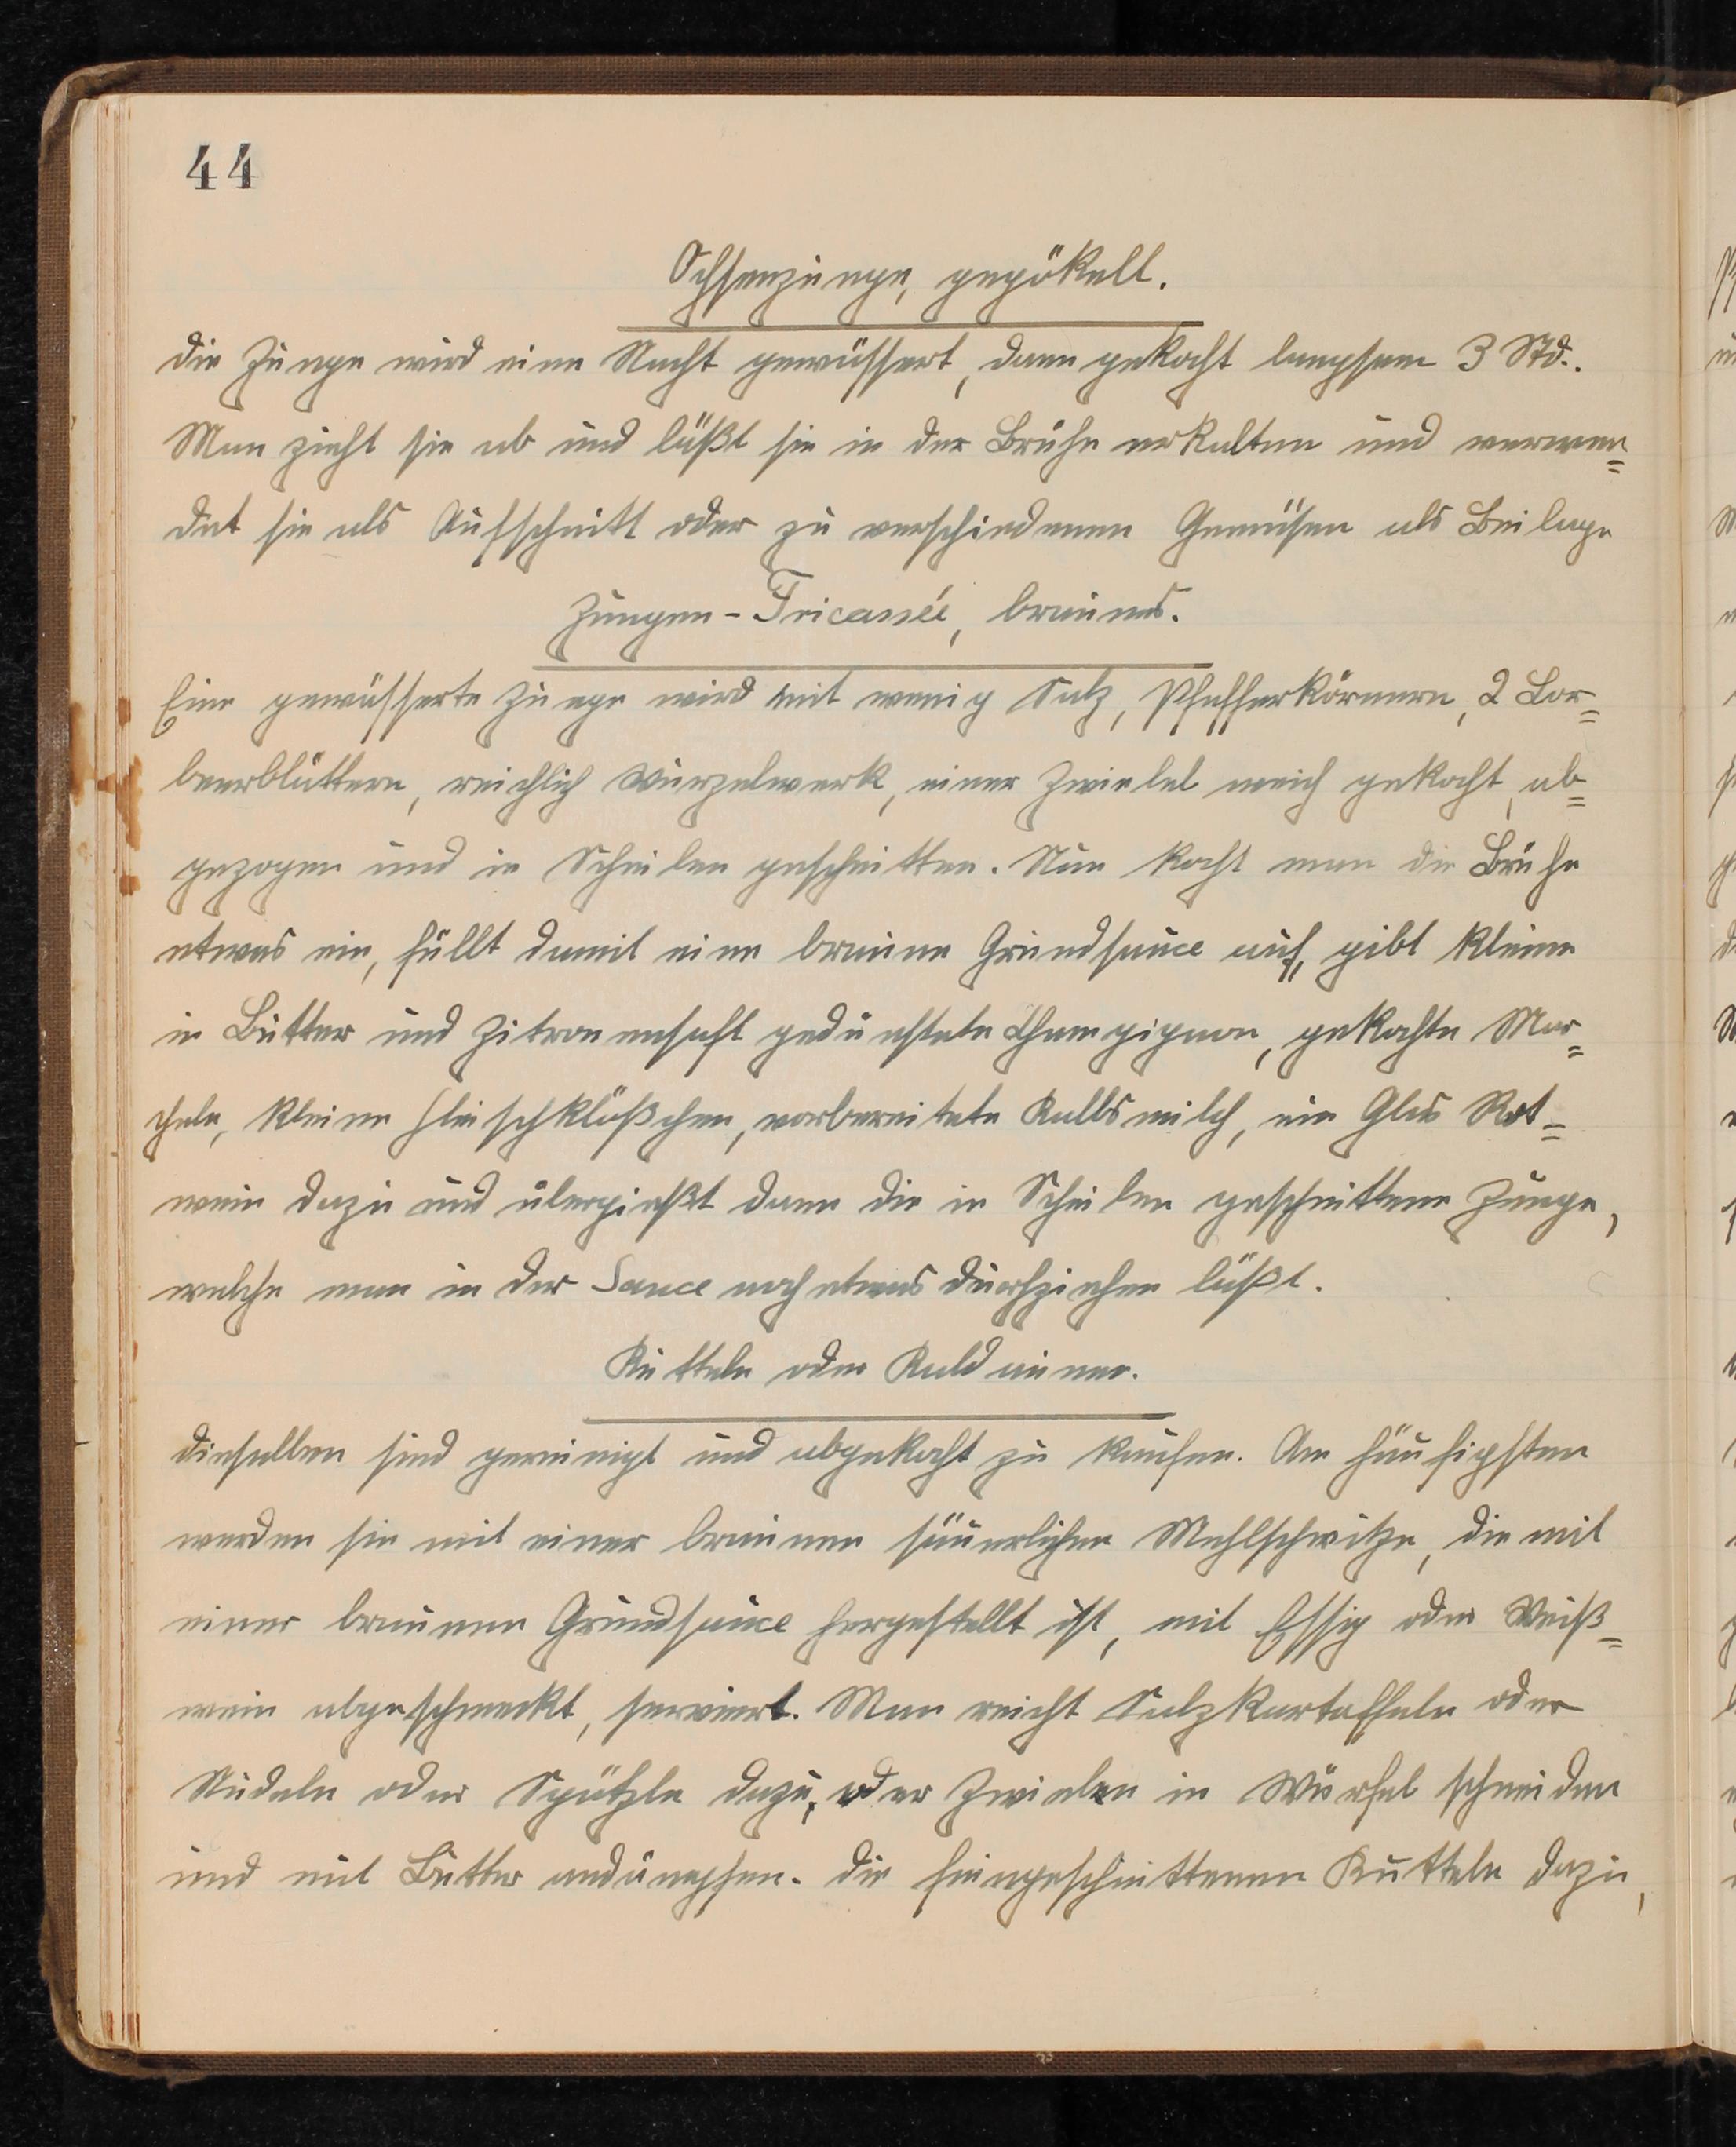 44
Ochsenzunge, gepökelt.
Die Zunge wird eine Nacht gewässert, dann gekocht langsam 3 Std..
Man zieht sie ab und läßt sie in der Brühe erkalten und verwen=
det sie als Aufschnitt oder zu verschiedenen Gemüsen als Beilage
Zungen-Fricassée, braunes.
Eine gewässerte Zunge wird mit wenig Salz, Pfefferkörnern, 2 Lor=
beerblättern, reichlich Wurzelwerk, einer Zwiebel weich gekocht, ab=
gezogen und in Scheiben geschnitten. Nun kocht man die Brühe
etwas ein, füllt damit eine braune Grundsauce auf, gibt kleine
in Butter und Zitronensaft gedünstete Champignon, gekochte Mor=
cheln, kleine Fleischklößchen, vorbereitete Kalbsmilch, ein Glas Rot=
wein dazu und übergießt dann die in Scheiben geschnittene Zunge,
welche man in der Sauce noch etwas durchziehen läßt.
Kutteln oder Kaldaunen.
Dieselben sind gereinigt und abgekocht zu kaufen. Am häufigsten
werden sie mit einer braunen säuerlichen Mehlschwitze, die mit
einer braunen Grundsauce hergestellt ist, mit Essig oder Weiß=
wein abgeschmeckt, serviert. Man reicht Salzkartoffeln oder
Nudeln oder Spätzle dazu, oder Zwieben in Würfel schneiden
und mit Butter andümpfen. Die feingeschnittenen Kutteln dazu,